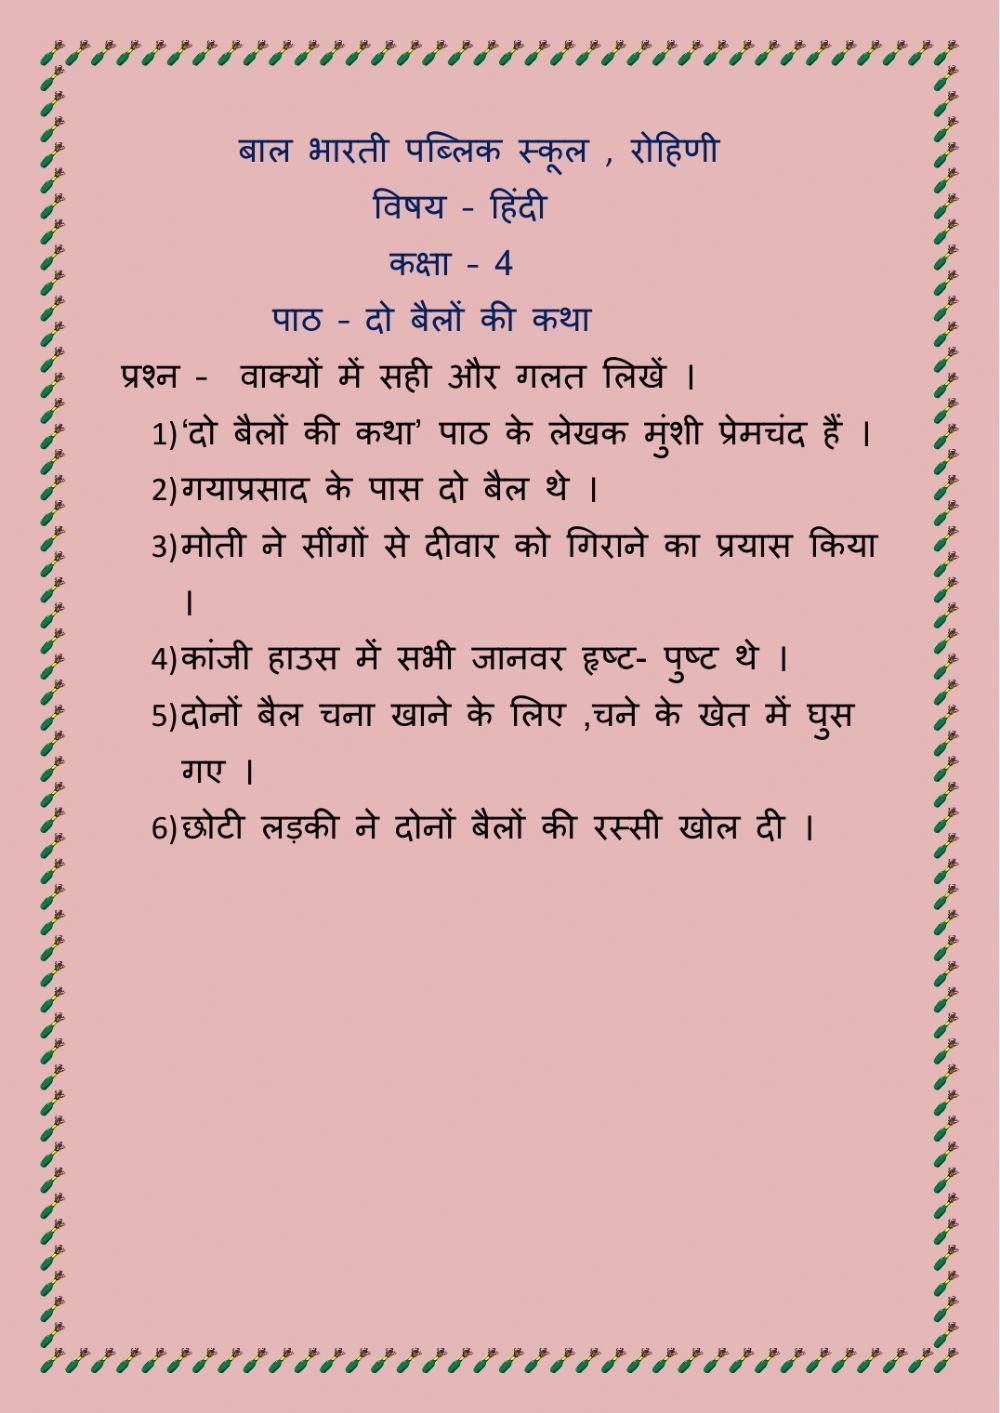 बाल भारती पब्लिक स्कूल , रोहिणी
विषय - हिंदी
कक्षा - 4
पाठ - दो बैलों की कथा
प्रश्न - वाक्यों में सही और गलत लिखें ।
1)‘दो बैलों की कथा’ पाठ के लेखक मुंशी प्रेमचंद हैं ।
2)गयाप्रसाद के पास दो बैल थे ।
3)मोती ने सींगों से दीवार को गिराने का प्रयास किया
।
4)कांजी हाउस में सभी जानवर हृष्ट- पुष्ट थे ।
5)दोनों बैल चना खाने के लिए ,चने के खेत में घुस
गए ।
6)छोटी लड़की ने दोनों बैलों की रस्सी खोल दी ।